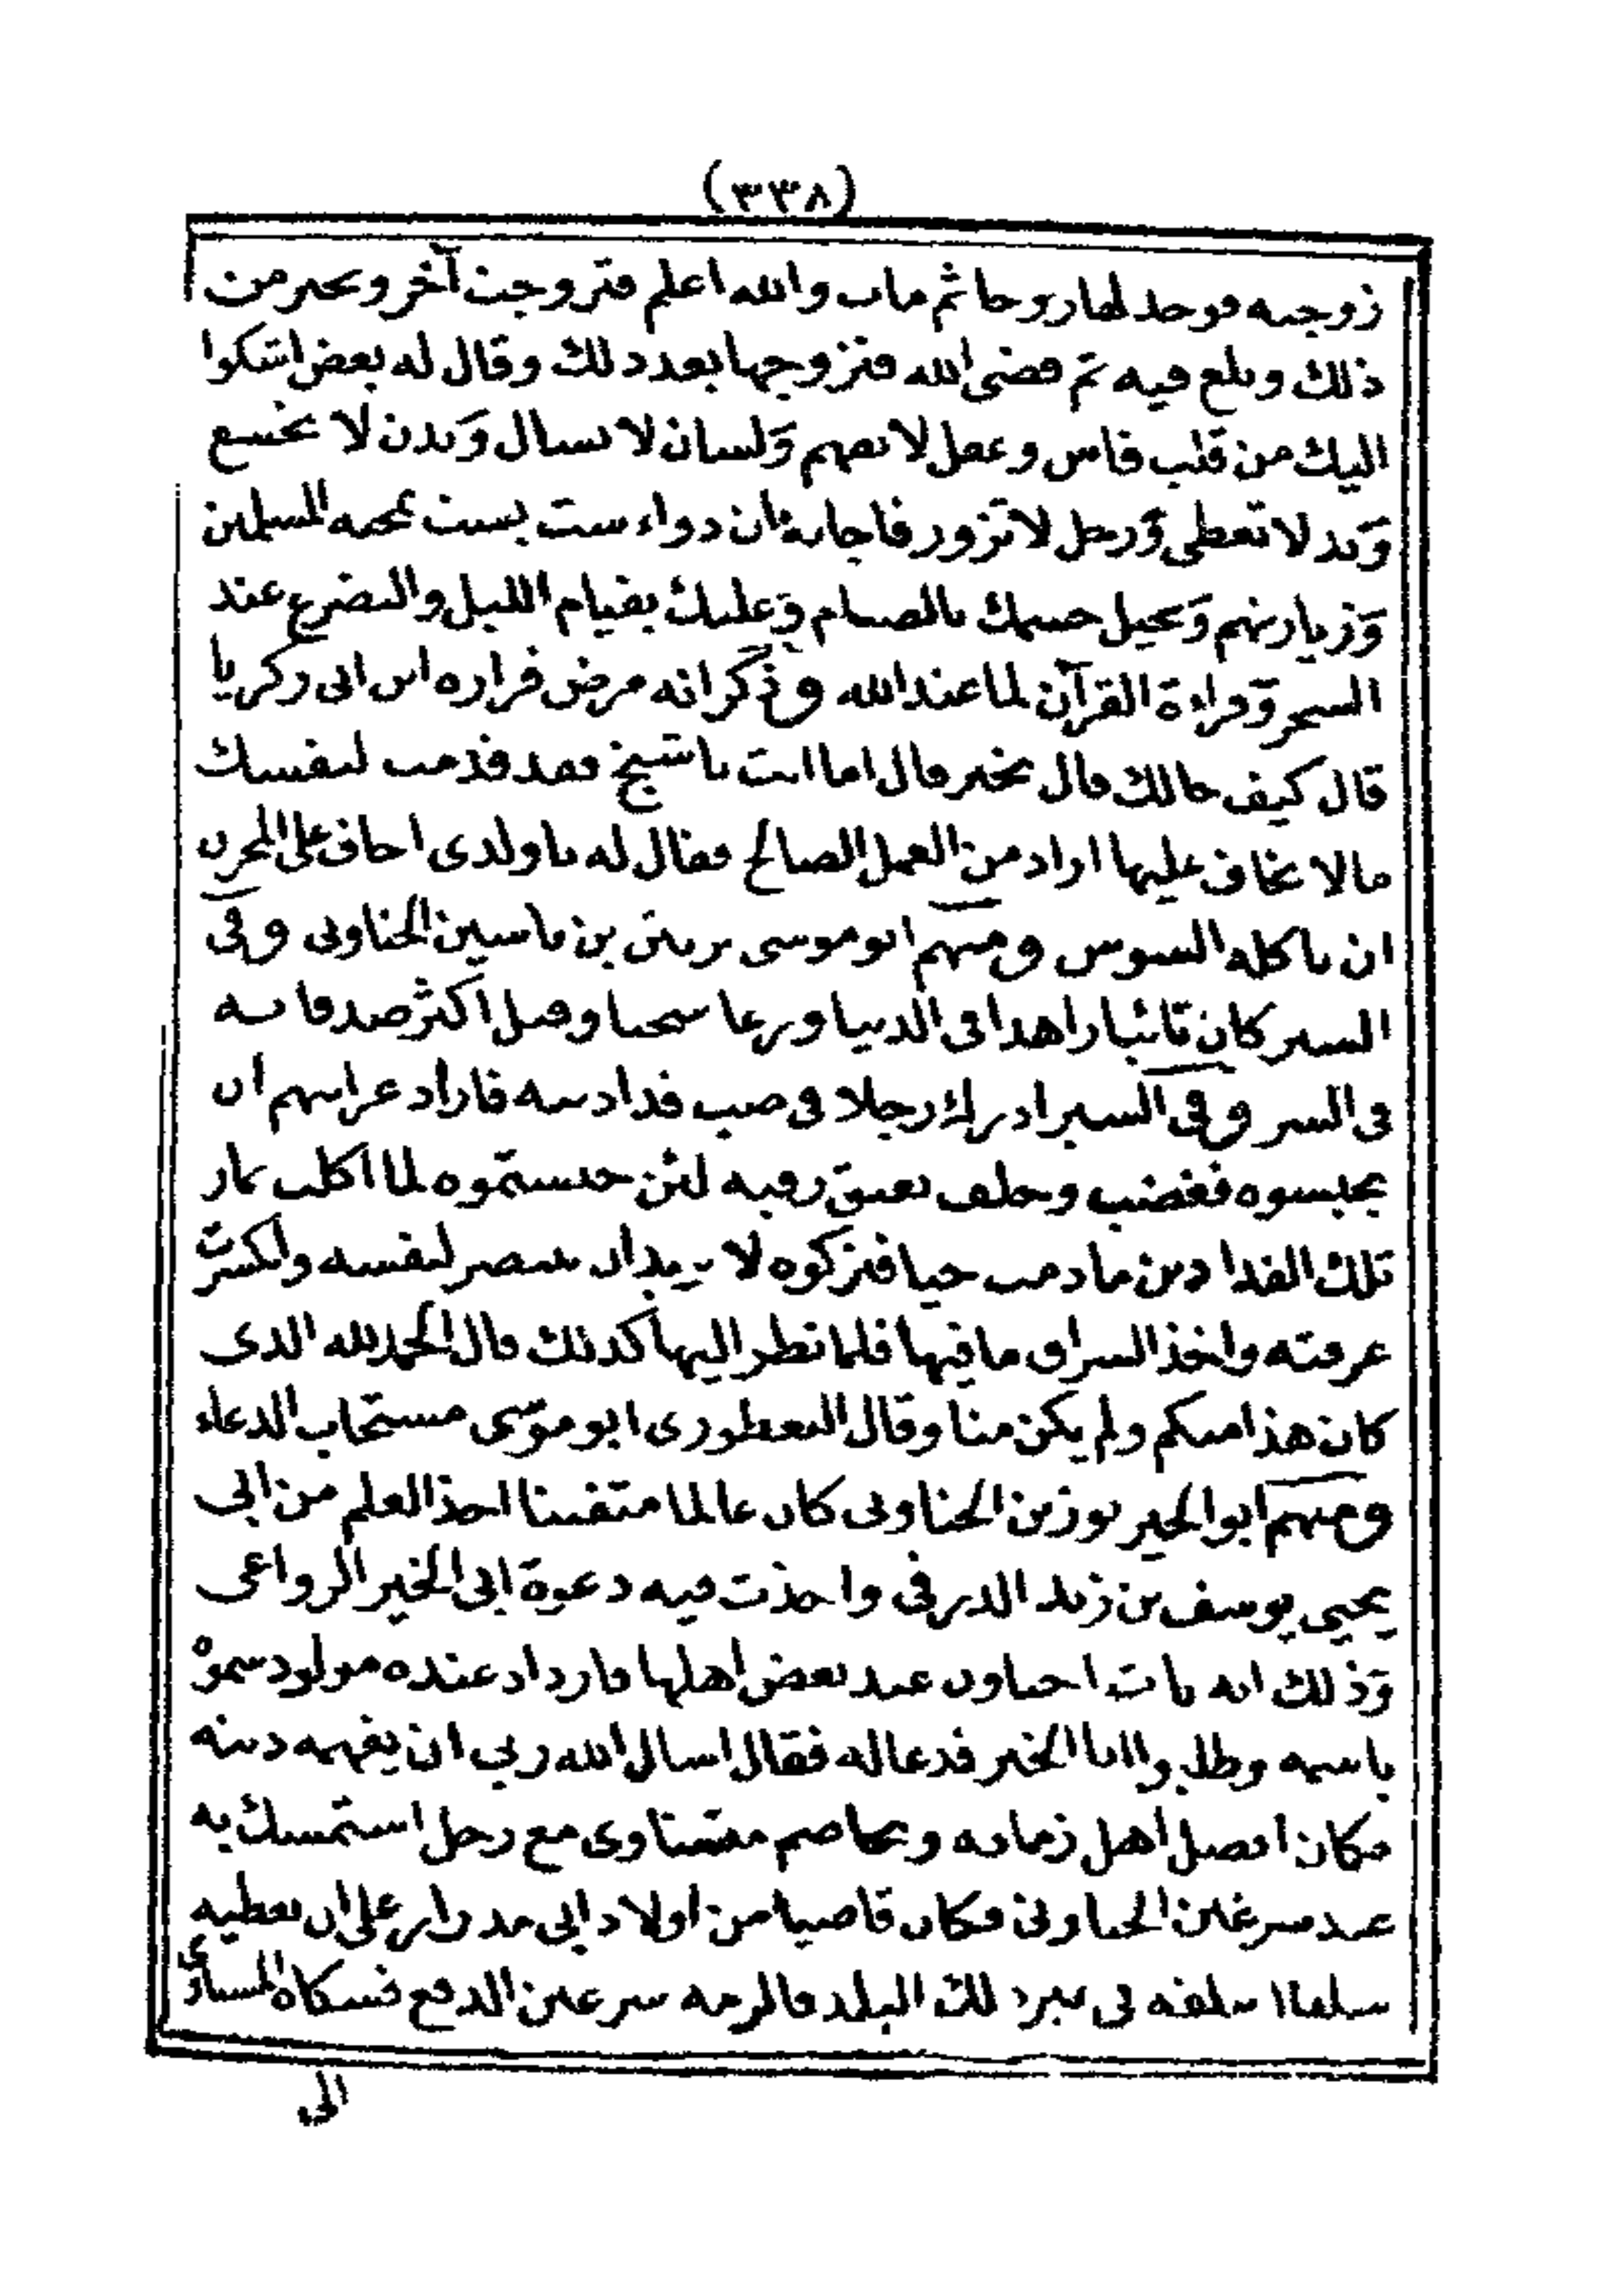 (٣٣٨)
زوجته فوجد لها زوجا ثم مات والله اعلم فتزوجت آخر وتحير من
ذلك وبلغ فيه ثم قضى الله فتزوجها بعد ذلك وقال له بعض اشكوا
اليك من قلب قاس وعقل لا يفهم ولسان لا يسال وبدن لا يخشع
ويد لا تعطى ورجل لا تزور فاجابه ان دواء ست بست بمحبة المسلمين
وزيارتهم ونحيل جسمك بالصيام وعليك بقيام الليل والتضرع عند
السحر وقراءة القرآن لما عند الله وذكر انه مرض فزاره ابن ابى زكريا
قال كيف حالك قال بخير قال اما انت يا شيخ فقد قدمت لنفسك
مالا يخاف عليها اراد من العمل الصالح فقال له يا ولدى اخاف على المخزن
ان ياكله السوس ومنهم ابو موسى يريتن بن ياسين الجناونى وفى
السير كان تائبا زاهدا فى الدنيا ورعا سخيا وقيل اكثر صدقاته
فى السر وفى السير ادرك رجلا فى صب فدادينه فاراد عرابتهم ان
يحبسوه فغضب وحلف بعتق رقبة لئن حبستموه لما اكلت ثمار
تلك الفدادين ما دمت حيا فتركوه لا يريد ان ينتصر لنفسه وانكسرت
غرفته واخذ السراق ما فيها فلما نظر اليها كذلك قال الحمد لله الذى
كان هذا منكم ولم يكن منا وقال البغطورى ابو موسى مستجاب الدعاء
ومنهم ابو الخير توزين الجناونى كان عالما متفننا اخذ العلم من ابى
يحيى يوسف بن زيد الدرفى واخذت فيه دعوة ابى الخير الزواغى
وذلك انه بات اجناون عند بعض اهلها فازداد عنده مولود سموه
باسمه وطلبوا ابا الخير فدعا له فقال اسال الله ربى ان يفهمه دينه
فكان افضل اهل زمانه وتخاصم مسناوى مع رجل استمسك به
عند سرغين الجناونى فكان قاضيا من اولاد ابى مدرار على ان يعطيه
سلفا اسلفه فى غير ذلك البلد فالزمه سرغين الدفع فشكاه المسناوى
الى